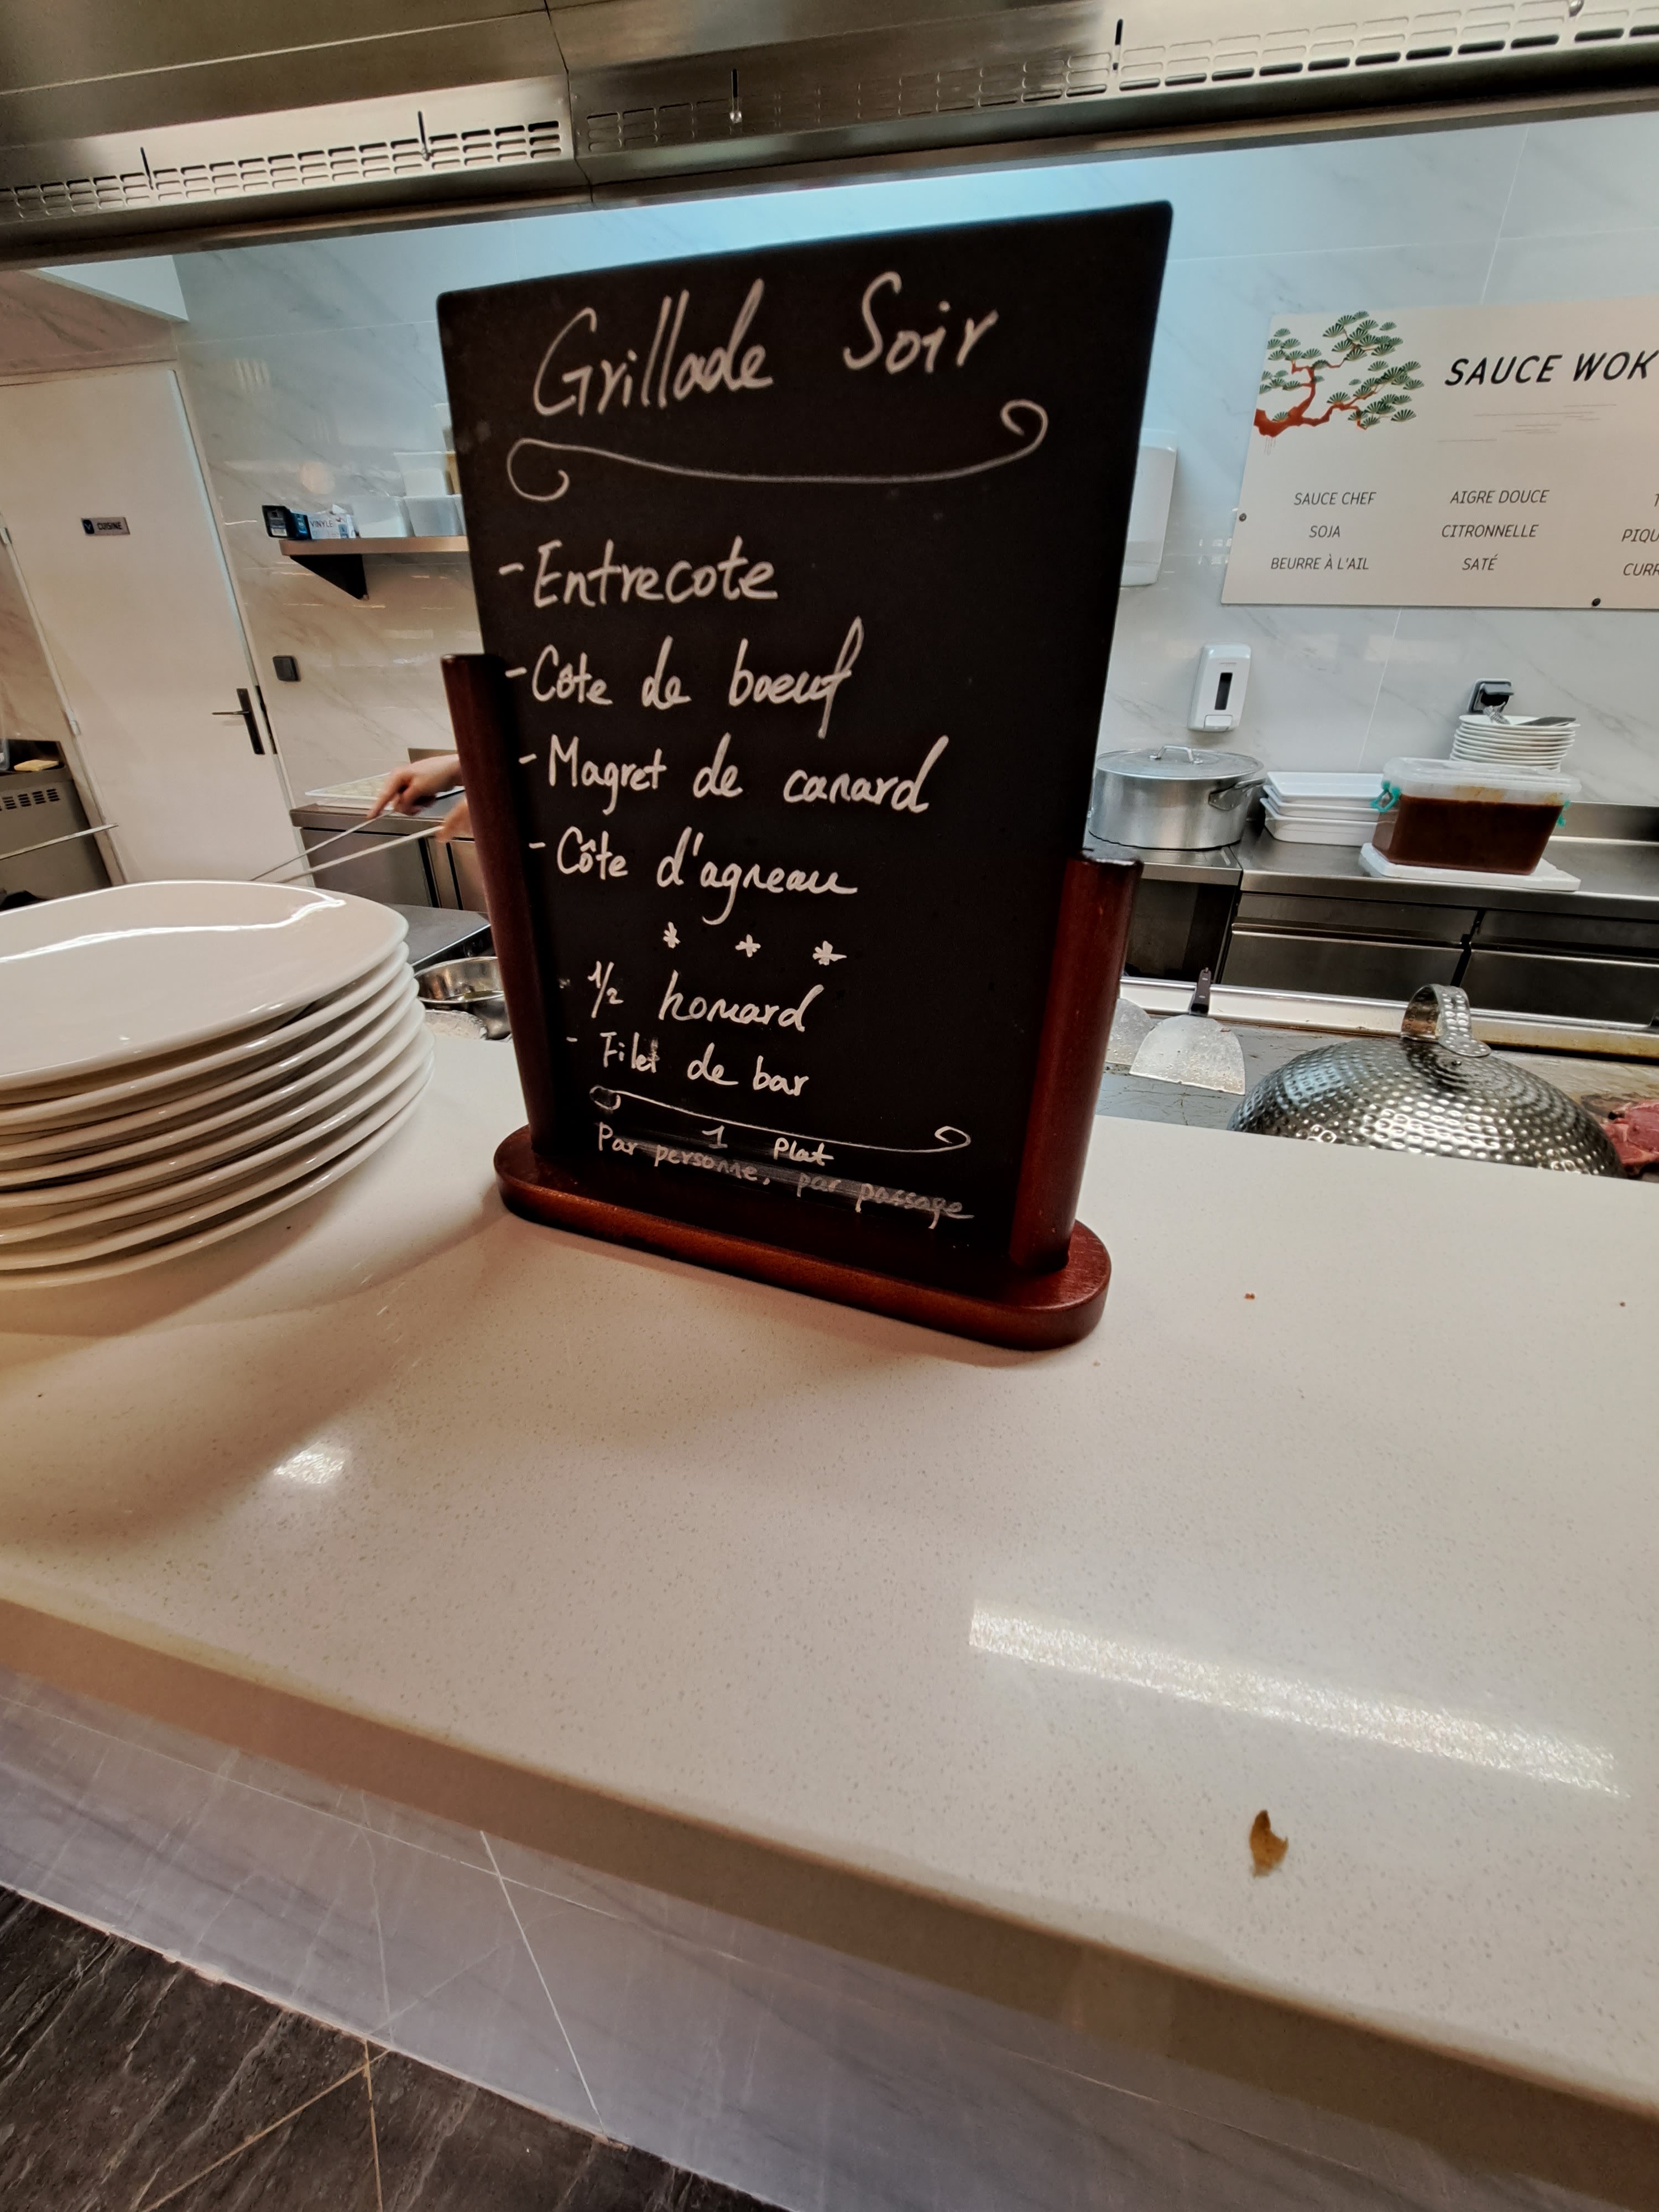 Grillade Soir
- Entrecote
- Côte de boeuf
- Magret de canard
- Côte d'agneau
* * *
- 1/2 homard
- Filet de bar
1 Plat
Par personne, par passage
CUISINE
VINYLE
SAUCE WOK
SAUCE CHEF
AIGRE DOUCE
SOJA
CITRONNELLE
PIQU
BEURRE À L'AIL
SATÉ
CURR